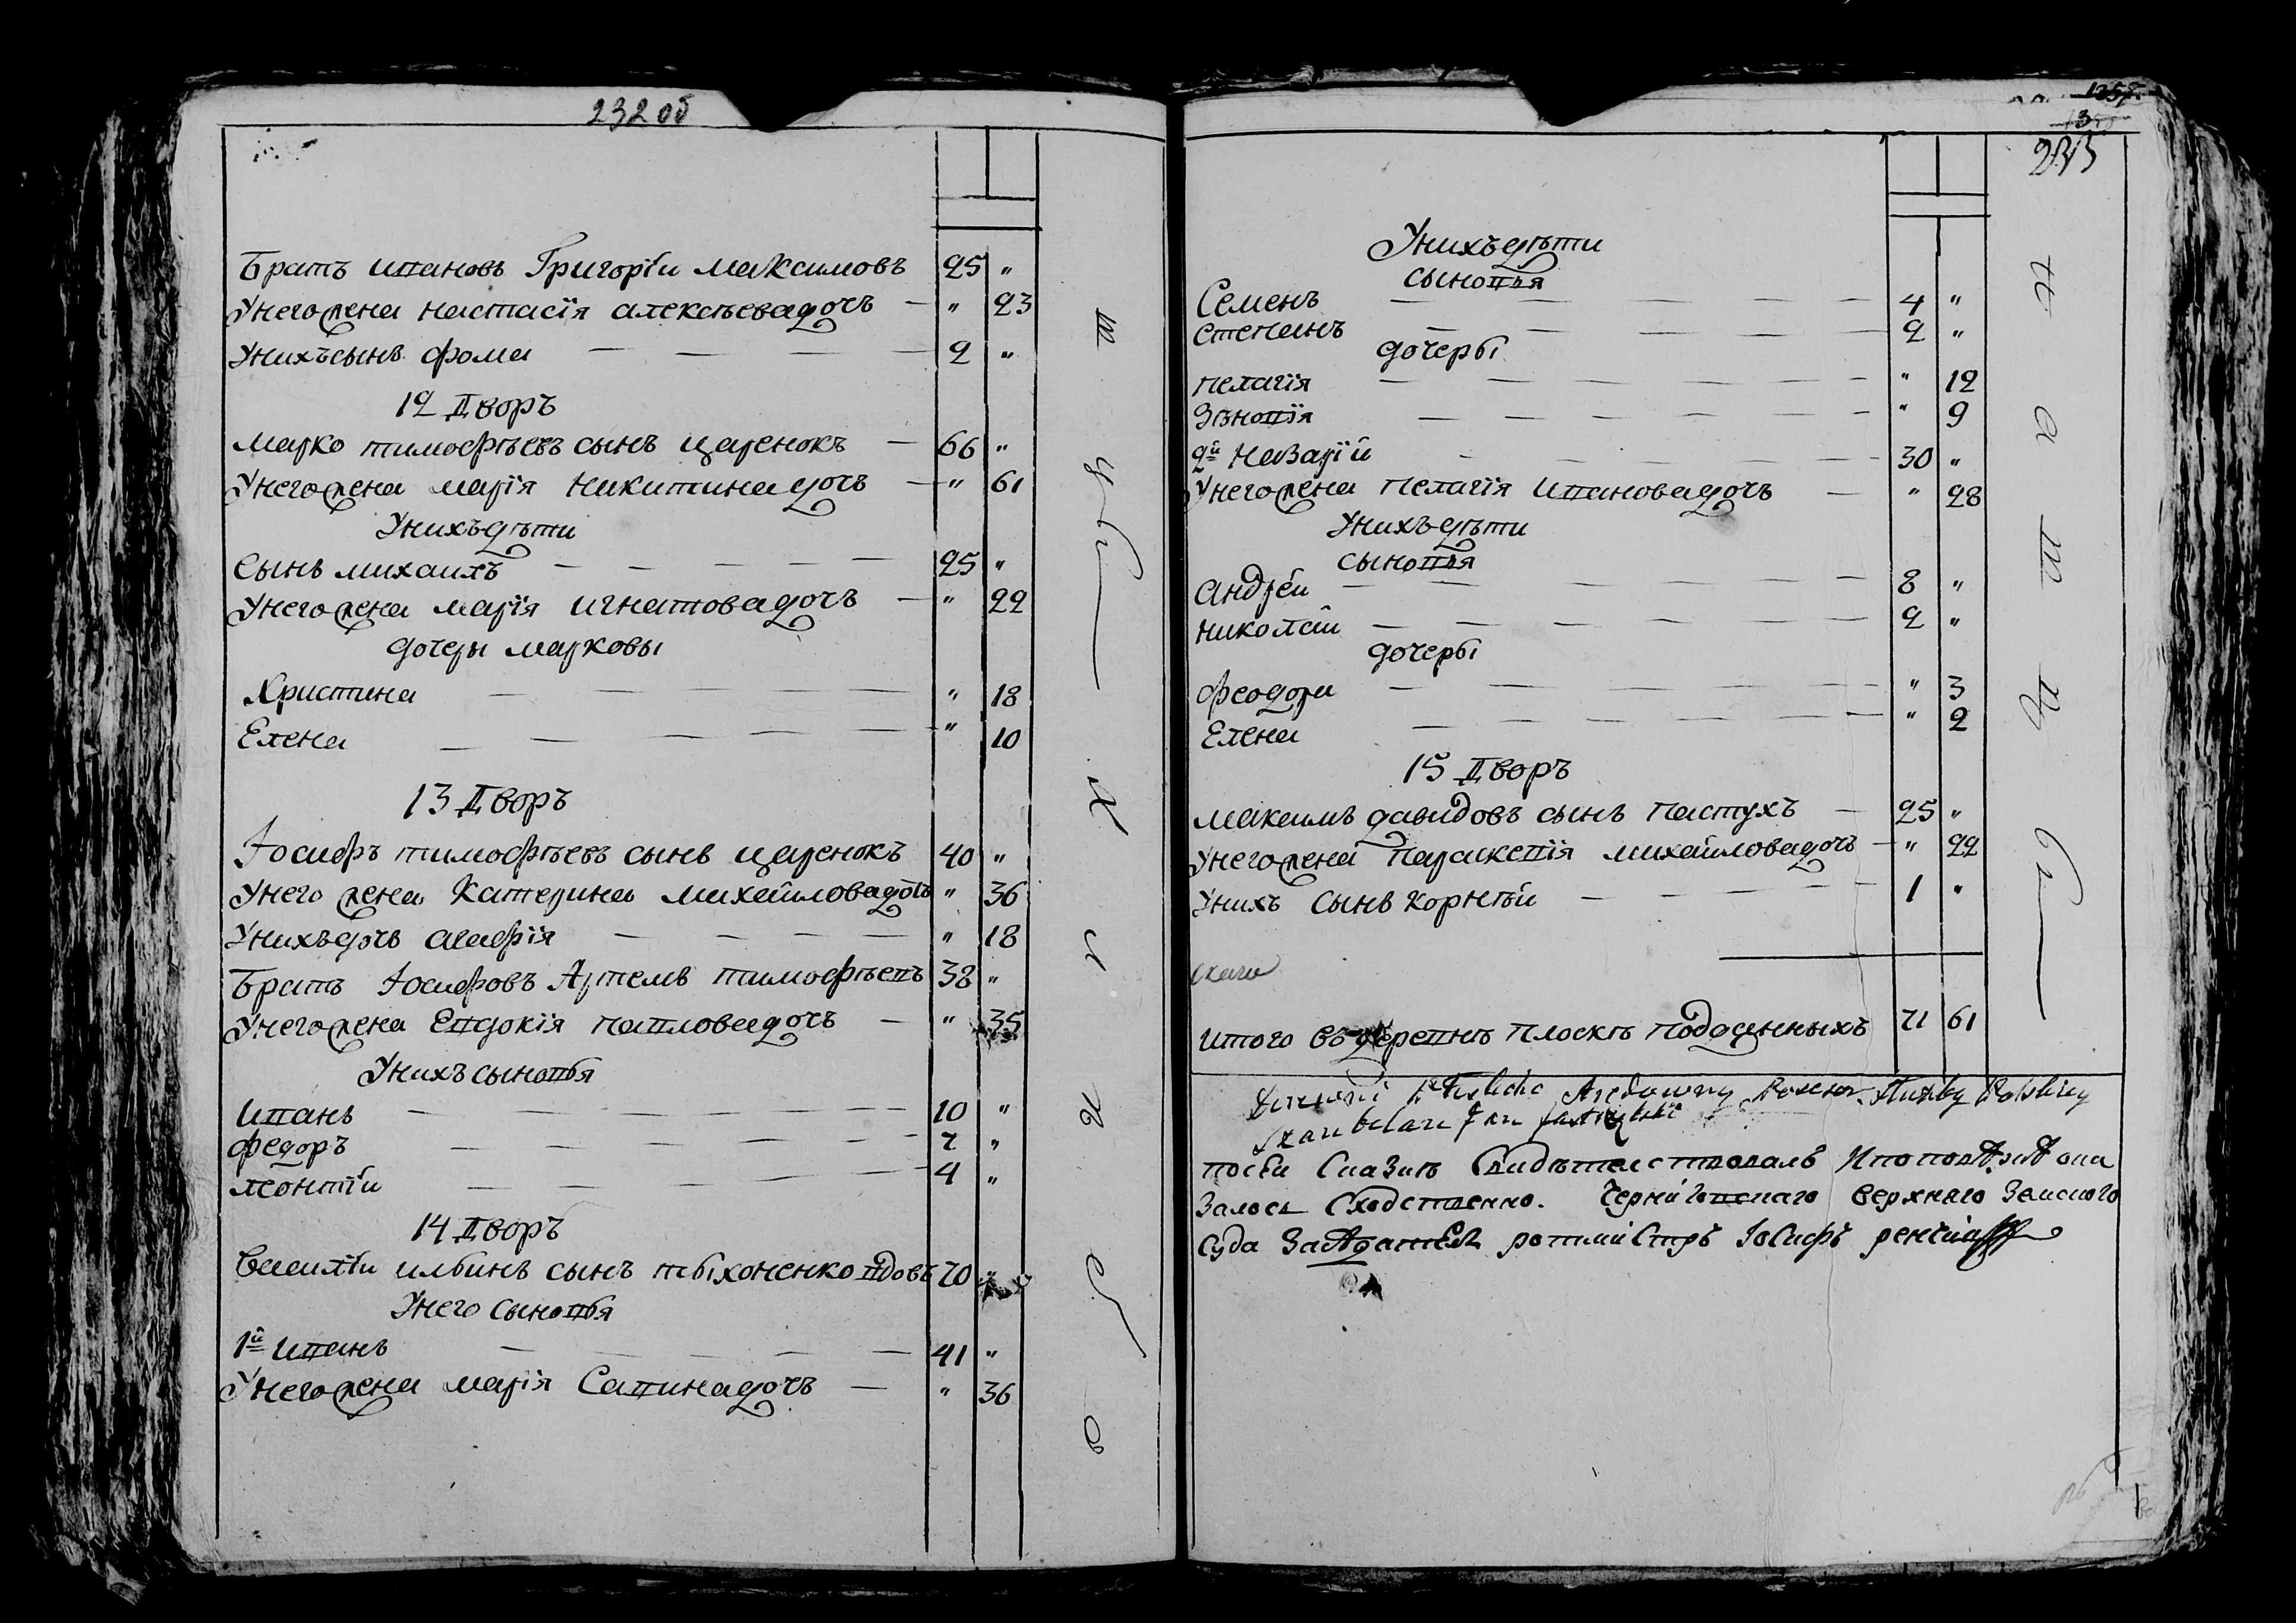 232 об
Братъ ивановъ Григорій максимовъ 25 „
Унего жена настасія алексѣева дочь — „ 23
Унихъ сынъ фома — 2 „
12 Дворъ
марко тимофѣевъ сынъ царенокъ — 66 „
Унего жена марія никитина дочь — „ 61
Унихъ дѣти
сынъ михаилъ — 25 „
Унего жена марія игнатова дочь — „ 22
дочеры марковы
Христина — „ 18
Елена — „ 10
13 Дворъ
Іосифъ тимофѣевъ сынъ царенокъ 40 „
Унего жена Катерина михайлова дочь „ 36
Унихъ дочь агафія — „ 18
Братъ Іосифовъ Артемъ тимофѣевъ 38 „
Унего жена Евдокія павлова дочь — „ 35
Унихъ сыновья
иванъ — 10 „
федоръ — 7 „
леонтій — 4 „
14 Дворъ
василій ильинъ сынъ тыхоненко вдовъ 70 „
Унего сыновья
1й иванъ — 41 „
Унего жена марія Савина дочь — „ 36
233
Унихъ дѣти
сыновья
Семенъ — 4 „
степанъ — 2 „
дочеры
пелагія — „ 12
Зѣновія — „ 9
2й Назарій — 30 „
Унего жена пелагія иванова дочь — „ 28
Унихъ дѣти
сыновья
андрей — 8 „
николай — 2 „
дочеры
феодора — „ 3
Елена — „ 2
15 Дворъ
максимъ давидовъ сынъ пастухъ — 25 „
Унего жена параскевія михайлова дочь — „ 22
Унихъ сынъ корнѣй — 1 „
итого въ деревнѣ плоскѣ подданныхъ 71 61
Jan
посей Сказкѣ Свидѣтелствовалъ Ипоповѣркѣ ока
залось Сходственно. Черниговскаго верхнаго Земского
Суда Засѣдатель ротмистръ Іосифъ